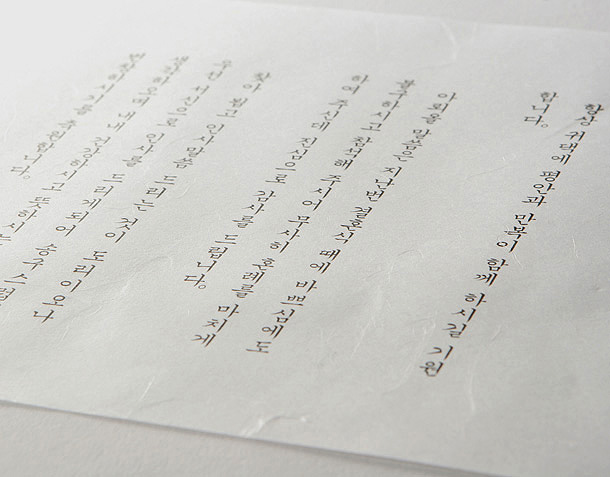 항상 귀댁에 평안과 만복이 함께 하시길 기원
합니다。
아뢰올 말씀은 지난번 결혼식 때에 바쁘심에도
불구하시고 참석해 주시어 무사히 혼례를 마치게
하여 주신데 진심으로 감사를 드립니다。
찾아 뵙고 인사 말씀 드리는 것이 도리이오나
우선 서신으로 인사를 드리게 되어 송구스럽
내내 건강하시고 뜻하시